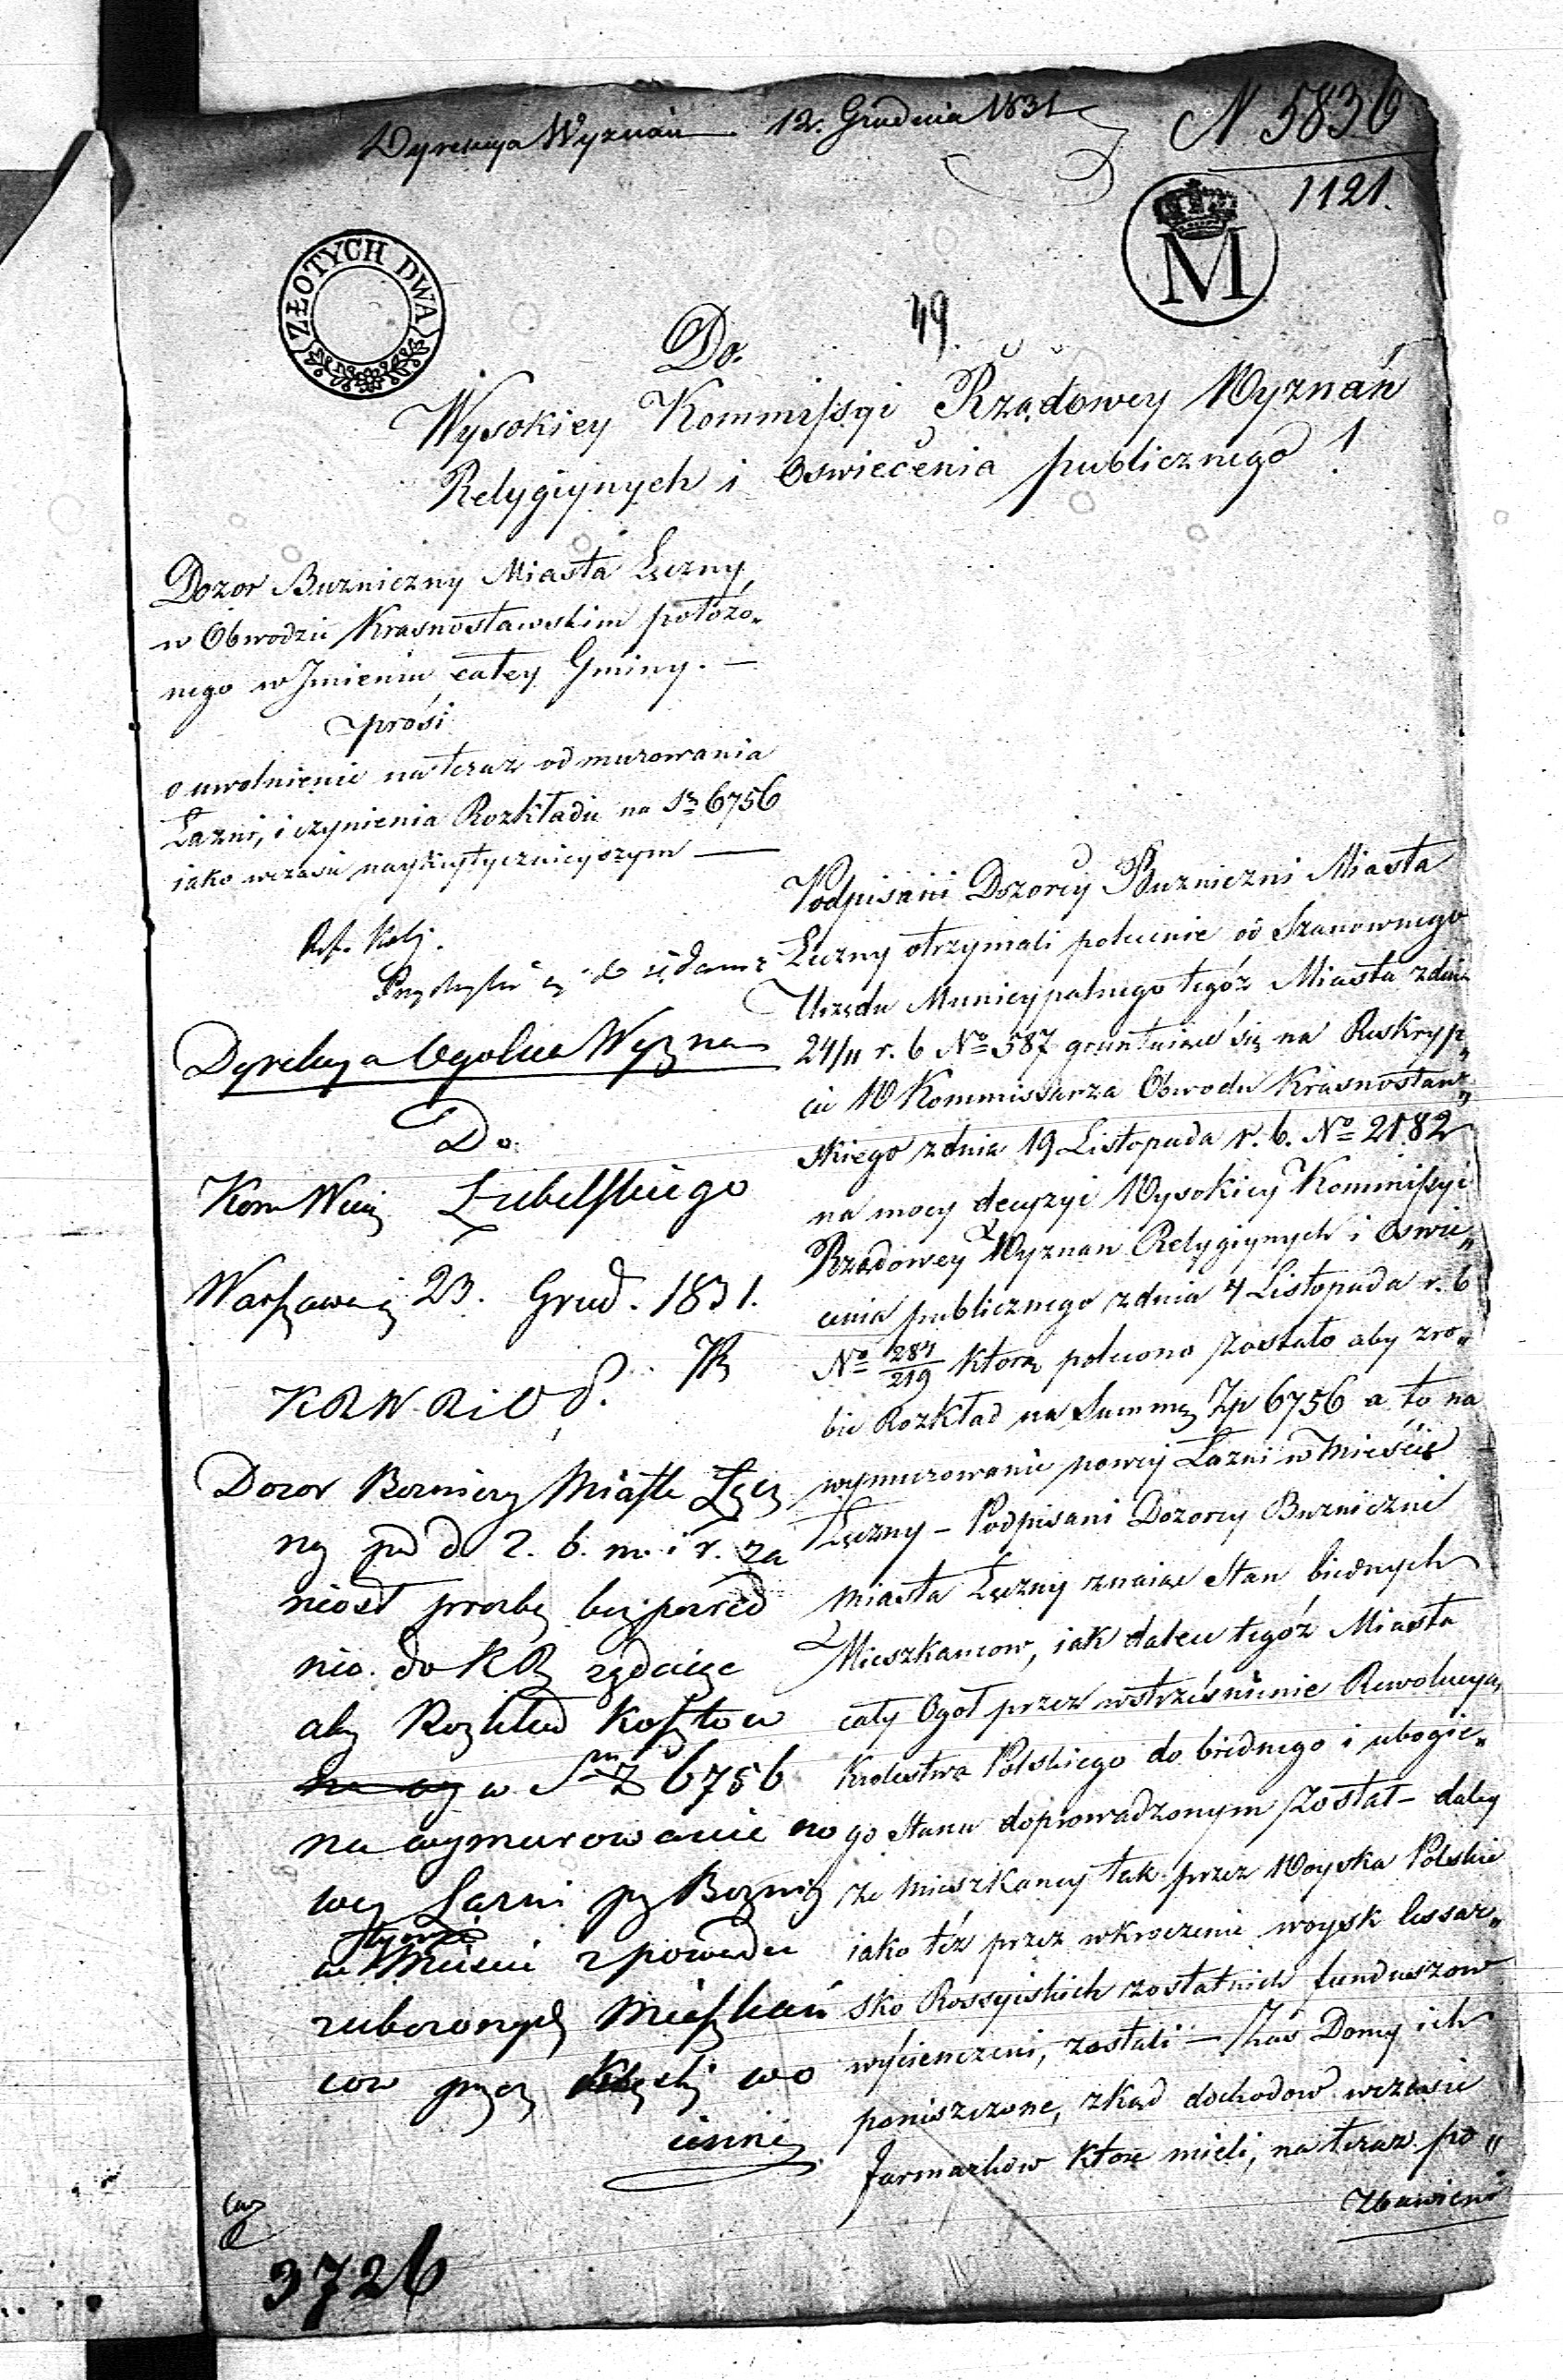 Dyrekcya Wyznań 12. Grudnia 1831
N 5836
1121.
ZŁOTYCH DWA
M
49.
Do.
Wysokiey Kommissyi Rządowey Wyznań
Relygiynych i Oswiecenia publicznego !
Dozor Buzniczny Miasta Łęczny
w Obwodzie Krasnostawskim położo„
nego w Jmieniu całey Gminy. —
prosi
o uwolnienie na teraz od murowania
Łazni, i czynienia Rozkładu na 6756
iako wczasie naykrytycznieyszym —
Dyrekcya Ogolna Wyzna
Do
Kom Lubelskiego
23. Grud. 1831.
K R W R i O P.
Dozor Bozniczy Miasta Łęcz
ny pod d 2. b. m. i r. za
niosł prozbę bezpośred
nio do K R żądaiąc
aby Rozkład Kosztow
w 6756
na wymurowanie no
wey Łazni
w Mieście z powodu
zubożonych Mieszkań
cow przez wo
ienne
3726
Podpisani Dozorcy Buzniczni Miasta
Łęczny otrzymali polecenie od Szanownego
Urzędu Municypalnego tegóż Miasta zdnia
24/11 r. b No 587 gruntuiące się na Reskryp„
cie W Kommissarza Obwodu Krasnostaw„
skiego zdnia 19 Listopada r. b. No 2182
na mocy decyzyi Wysokiey Kommissyi
Rządowey Wyznan Relygiynych i Oswie„
cenia publicznego zdnia 4 Listopada r. b
No 284/219 którą polecono zostało aby zro„
bić Rozkład na Summę Zp 6756 a to na
wymurowanie nowey Łazni w Mieście
Łęczny — Podpisani Dozorcy Buzniczni
Miasta Łęczny znaiąc Stan biednych
Mieszkancow, iak dalece tegóż Miasta
cały Ogoł przez wstrześnienie Rewolucyą
Krolestwa Polskiego do biednego i ubogie„
go Stanu doprowadzonym został — daley
że Mieszkancy tak przez Woyska Polskie
iako też przez wkroczenie woysk Cesar„
sko Rossyiskich zostatnich funduszow
wycienczeni, zostali — Zaś Domy ich
poniszczone, zkąd dochodow wczasie
Jarmarkow ktore mieli, na teraz po„
zbawieni